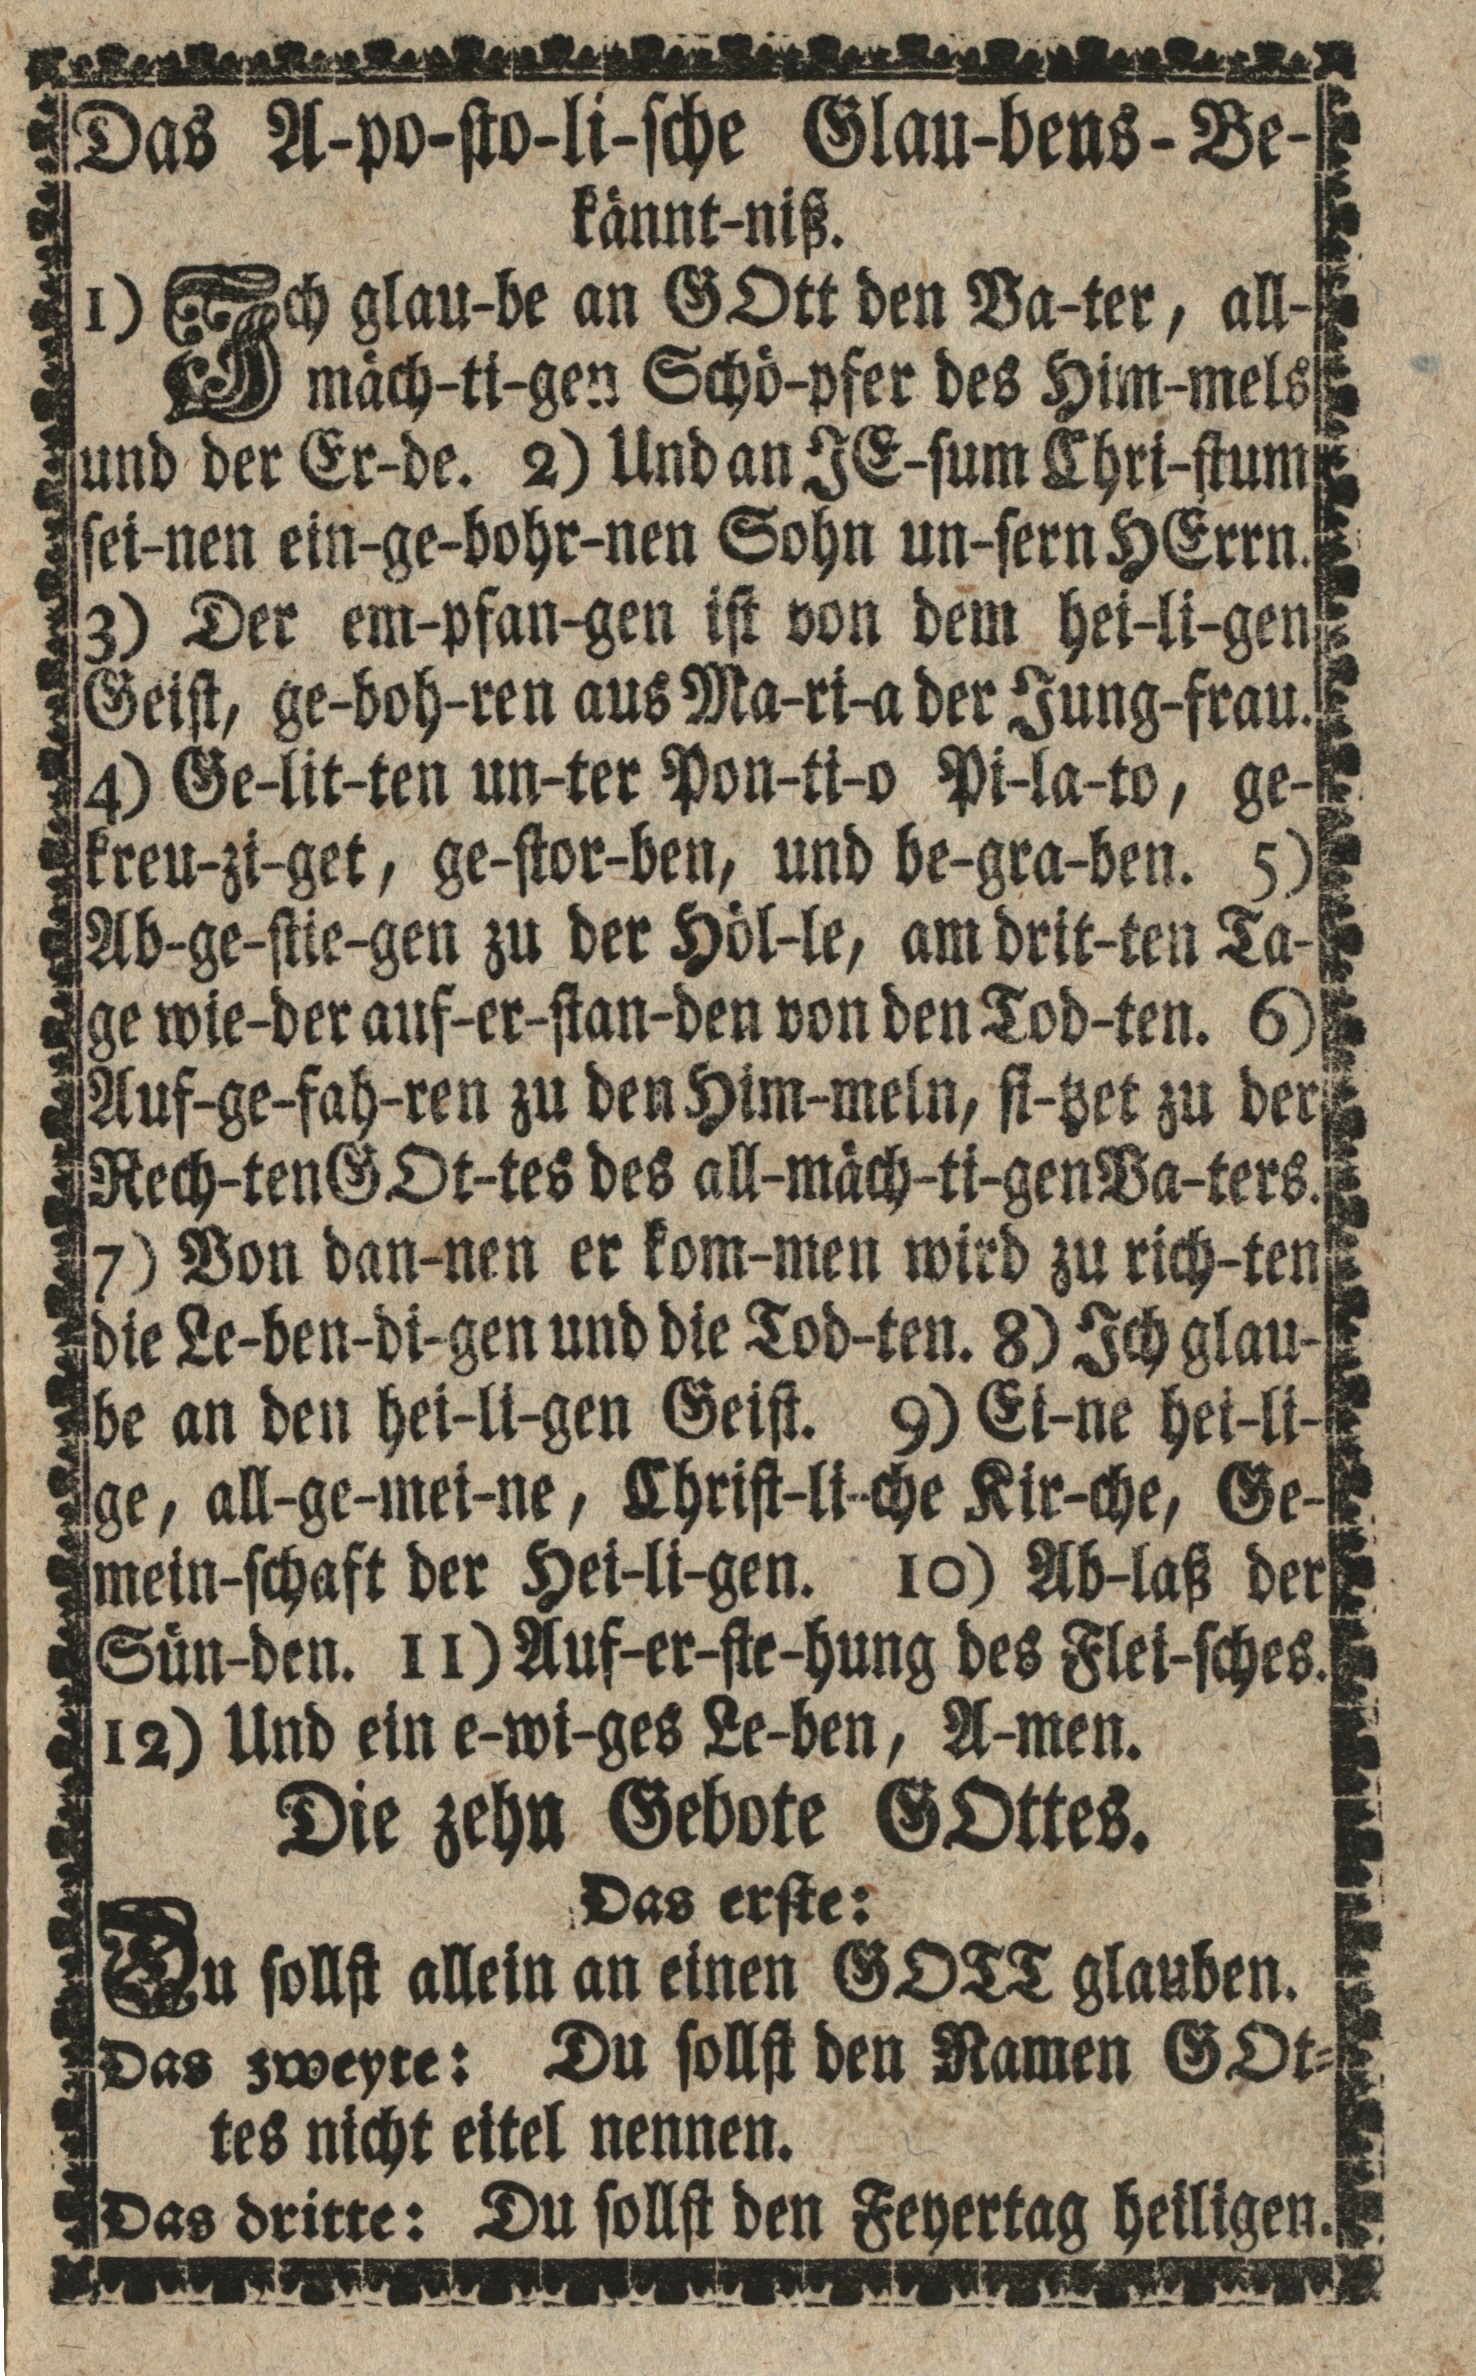 Das A-po-sto-li-sche Glau-bens-Be-
kännt-niß.
1) Ich glau-be an GOtt den Va-ter, all-
mäch-ti-gen Schö-pfer des Him-mels
und der Er-de. 2) Und an JE-sum Chri-stum
sei-nen ein-ge-bohr-nen Sohn un-sern HErrn.
3) Der em-pfan-gen ist von dem hei-li-gen
Geist, ge-boh-ren aus Ma-ri-a der Jung-frau.
4) Ge-lit-ten un-ter Pon-ti-o Pi-la-to, ge-
kreu-zi-get, ge-stor-ben, und be-gra-ben. 5)
Ab-ge-stie-gen zu der Höl-le, am drit-ten Ta-
ge wie-der auf-er-stan-den von den Tod-ten. 6)
Auf-ge-fah-ren zu den Him-meln, si-tzet zu der
Rech-ten GOt-tes des all-mäch-ti-gen Va-ters.
7) Von dan-nen er kom-men wird zu rich-ten
die Le-ben-di-gen und die Tod-ten. 8) Ich glau-
be an den hei-li-gen Geist. 9) Ei-ne hei-li-
ge, all-ge-mei-ne, Christ-li-che Kir-che, Ge-
mein-schaft der Hei-li-gen. 10) Ab-laß der
Sün-den. 11) Auf-er-ste-hung des Flei-sches.
12) Und ein e-wi-ges Le-ben, A-men.
Die zehn Gebote GOttes.
Das erste:
Du sollst allein an einen GOTT glauben.
Das zweyte: Du sollst den Namen GOt-
tes nicht eitel nennen.
Das dritte: Du sollst den Feyertag heiligen.